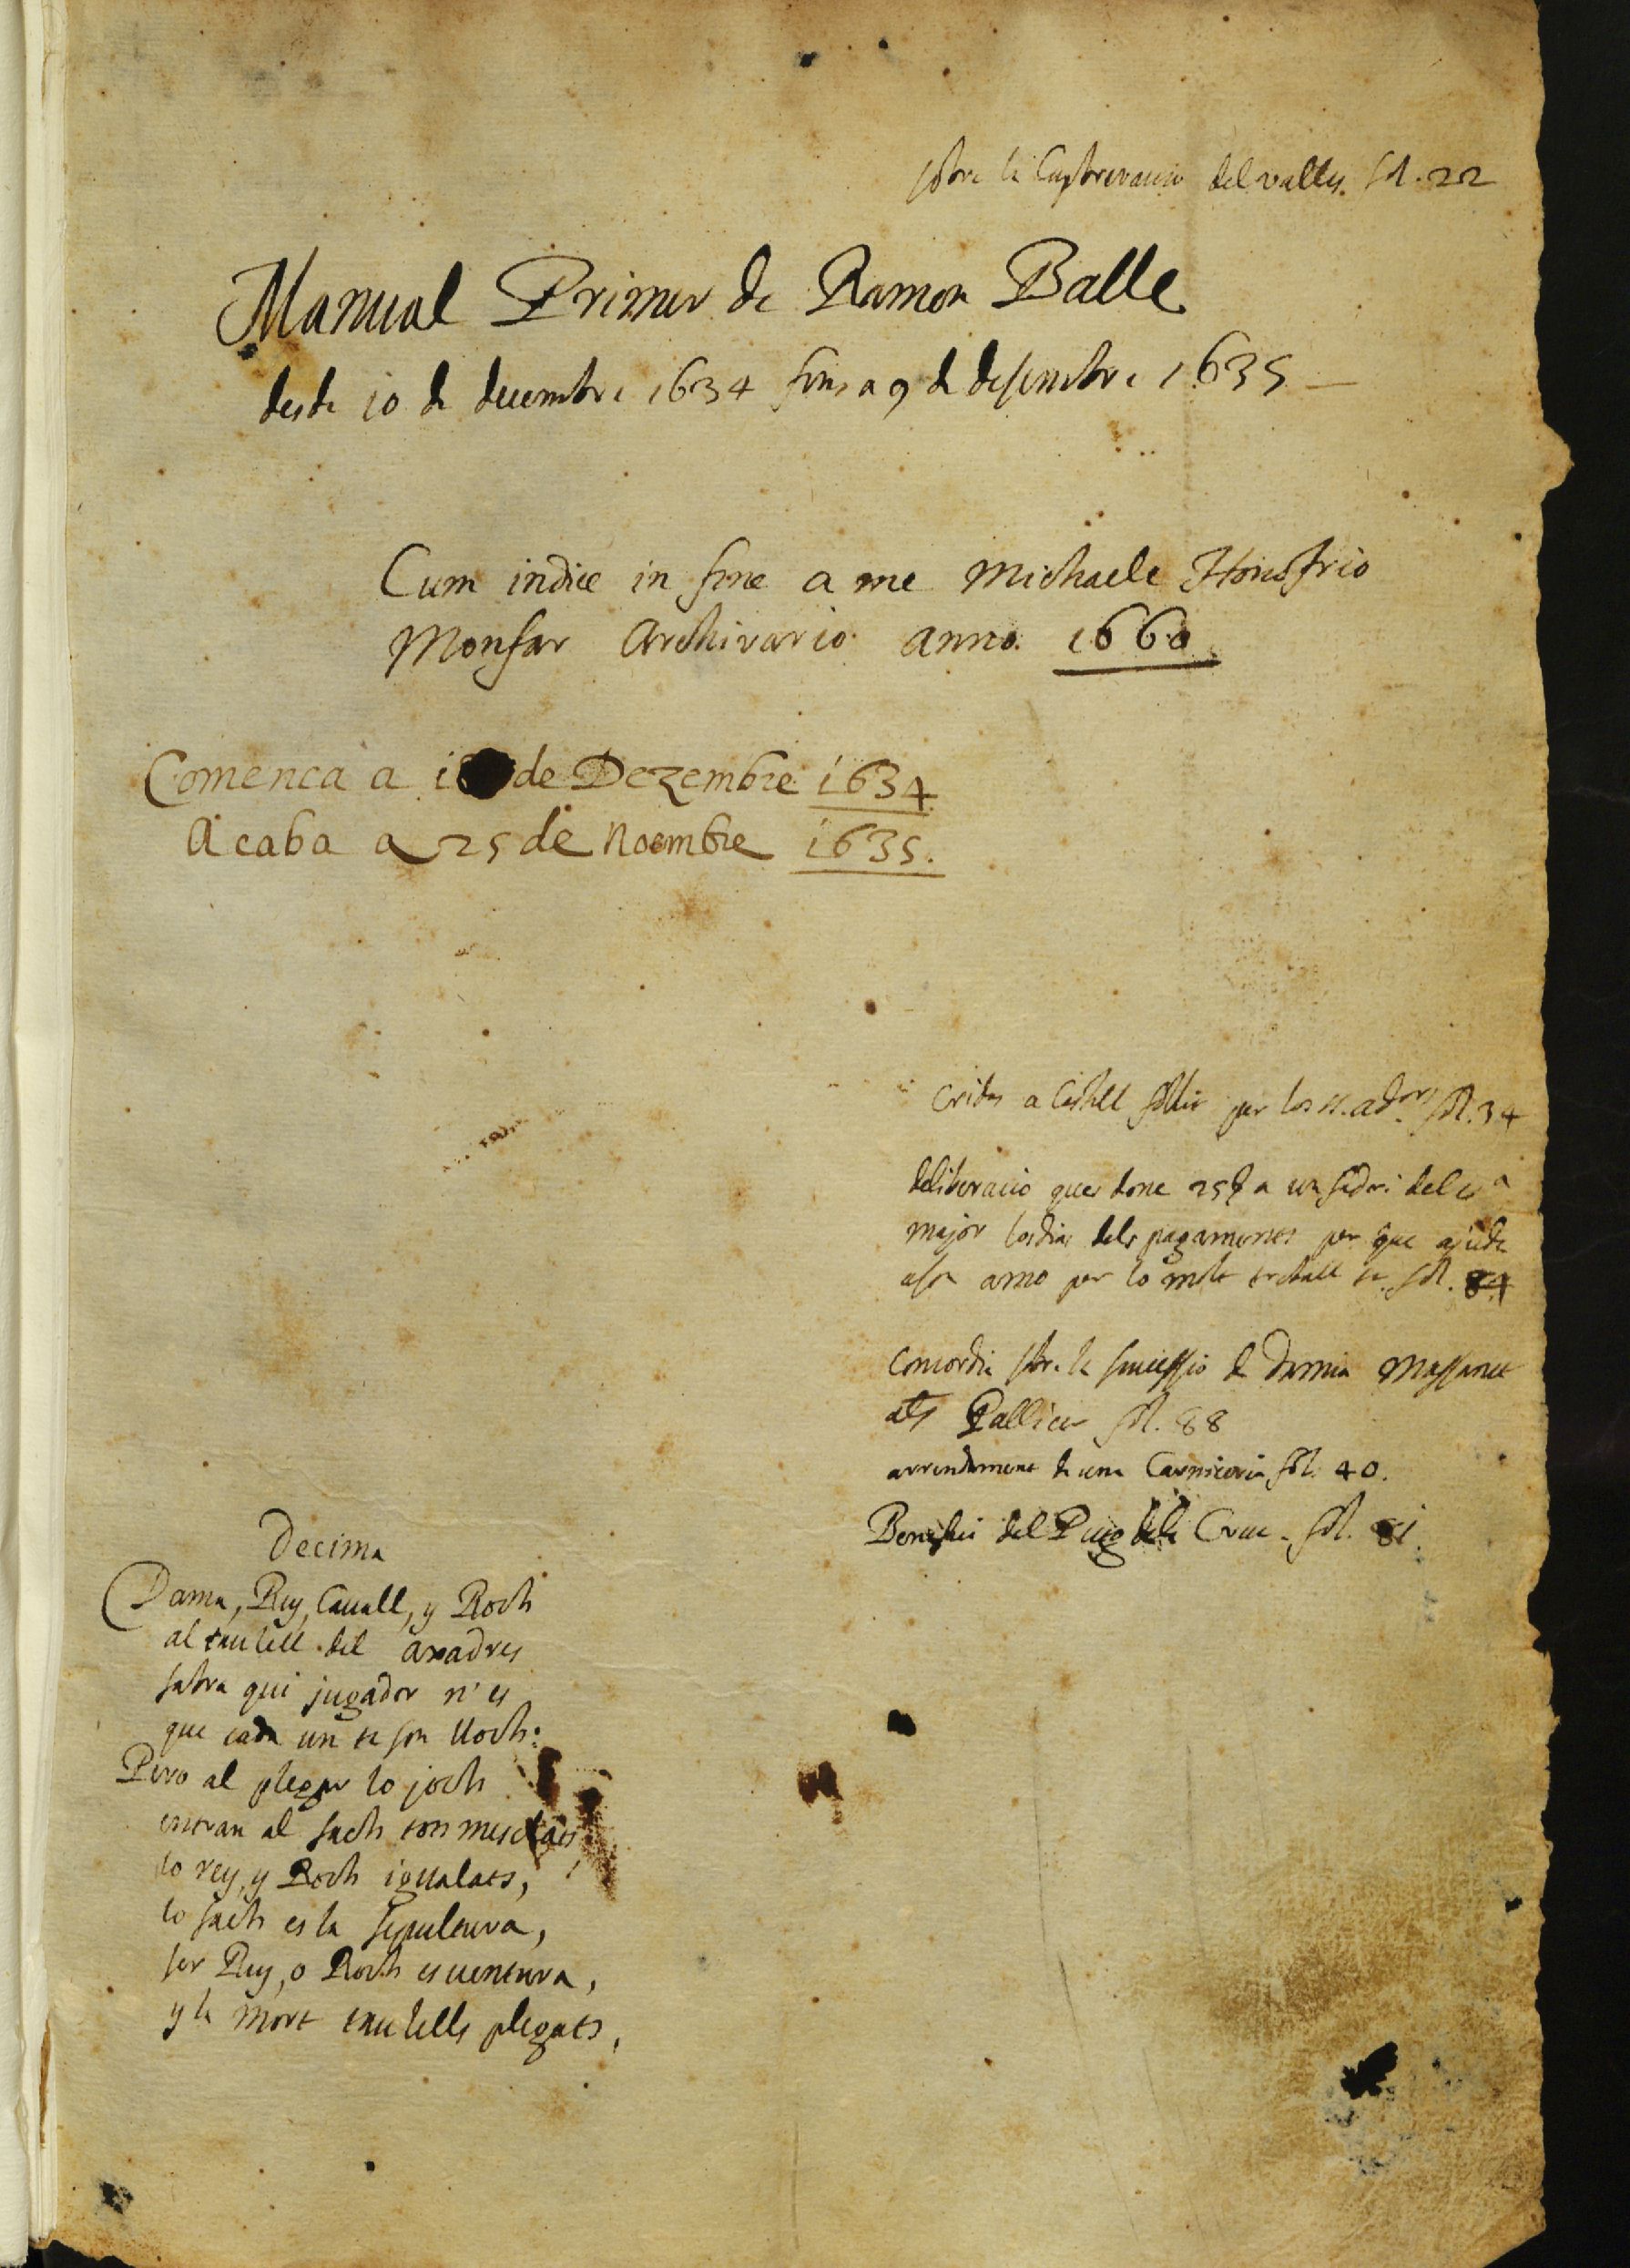 sobre la Capbrevacio del valles. fol. 22
Manual Primer de Ramon Balle
desde 10 de decembre 1634 fins a 9 de desembre 1635
Cum indice in fine a me Michaele Honofrio
Monfar Archivario anno. 1660
Comenca a de Dezembre 1634
Acaba a 25 de Noembre 1635.
Cridas a Castell follit per los fol. 34
deliberacio ques done 25 a un fadri del
major los dias dels pagaments per que ajude
a son amo per lo molt treball fol. 84
Concordia sobre la successio de Damia Massanet
als Pallicer fol. 88
arrendament de una Carniceria fol. 40.
Benefici del Puig dela Creu. fol. 81.
Decima
Dama, Rey, Cavall, y Roch
al taulell del axadres
sabra qui jugador n'es
que cada un te son lloch:
Pero al plegar lo joch
entran al sach tots mesclats,
lo rey, y Roch igualats,
lo sach es la sepultura,
ser Rey, o Roch es ventura,
y la mort taulells plegats,